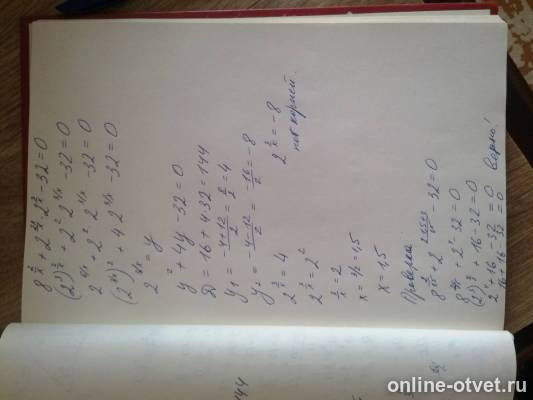 8^(2/x) + 2^((3x+3)/x) - 32 = 0
(2^3)^(2/x) + 2^2 · 2^(3/x) - 32 = 0
2^(6/x) + 2^2 · 2^(3/x) - 32 = 0
(2^(3/x))^2 + 4 · 2^(3/x) - 32 = 0
2^(3/x) = y
y² + 4y - 32 = 0
D = 16 + 4·32 = 144
y₁ = (-4+12)/2 = 8/2 = 4
y₂ = (-4-12)/2 = -16/2 = -8
2^(3/x) = 4
2^(3/x) = -8
2^(3/x) = 2²
нет корней.
3/x = 2
x = 3/2 = 1,5
x = 1,5
Проверка
- 32 = 0
- 32 = 0
+ 16 - 32 = 0
2⁴ + 16 - 32 = 0
16 + 16 - 32 = 0 верно!
144
online-otvet.ru